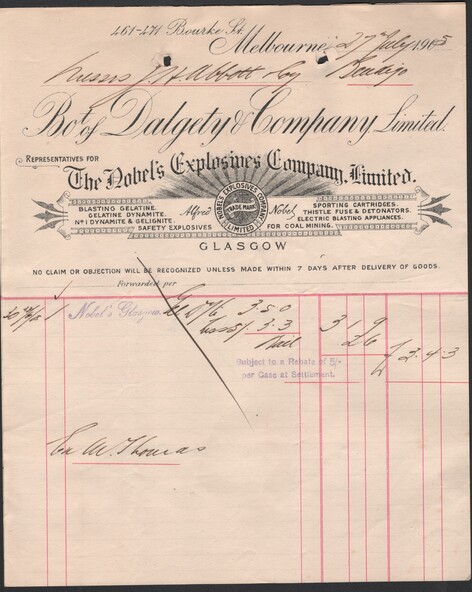 461-471 Bourke St.
Melbourne, 27th July 1905
Messrs J. H. Abbott & Coy Bendigo
Bot. of Dalgety & Company Limited.
REPRESENTATIVES FOR
The Nobel's Explosives Company, Limited.
BLASTING GELATINE.
GELATINE DYNAMITE.
No 1 DYNAMITE & GELIGNITE.
SAFETY EXPLOSIVES
Alfred Nobel
NOBEL'S EXPLOSIVES COMPANY LIMITED
TRADE MARK
SPORTING CARTRIDGES.
THISTLE FUSE & DETONATORS.
ELECTRIC BLASTING APPLIANCES.
FOR COAL MINING.
GLASGOW
NO CLAIM OR OBJECTION WILL BE RECOGNIZED UNLESS MADE WITHIN 7 DAYS AFTER DELIVERY OF GOODS.
Forwarded per
1 Nobel's Glasgow 3.5.0
less 5/- 3.3 3 1 9
Rail 2 6 £ 3.4.3
Subject to a Rebate of 5/-
per Case at Settlement.
Ex W. Thomas